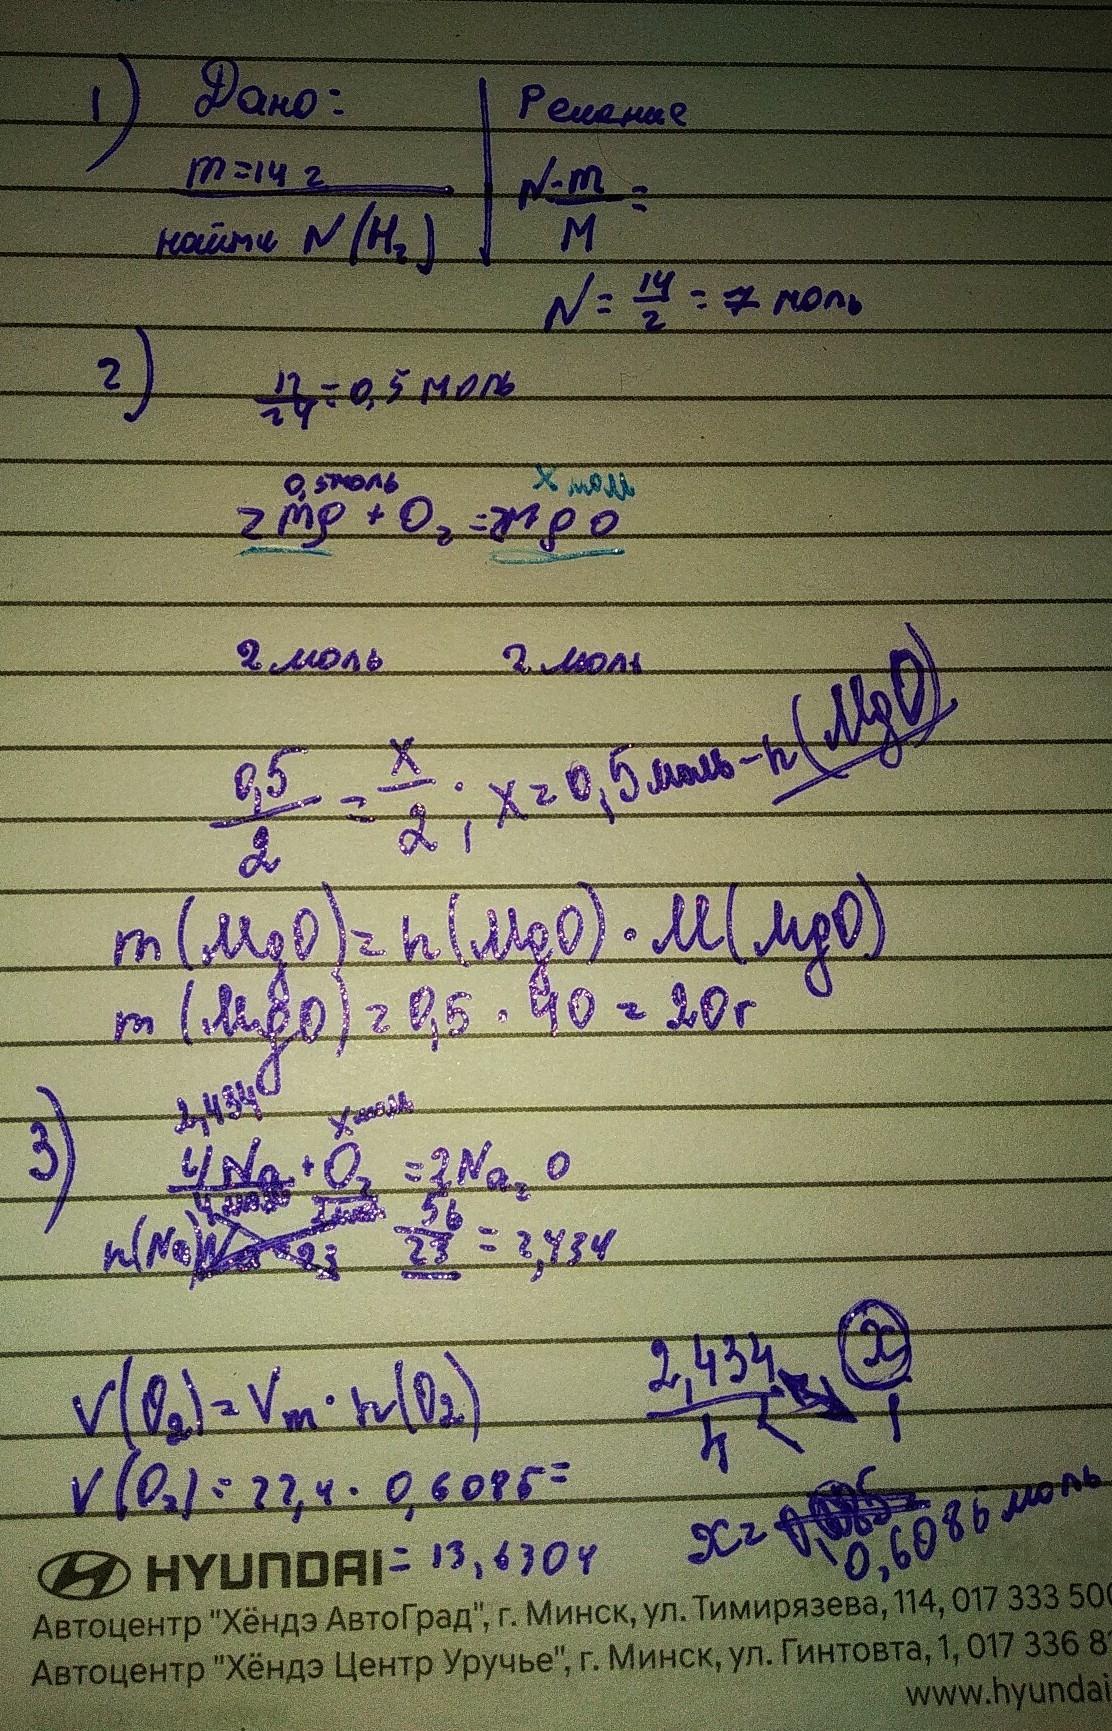 1) Дано: Решение
m=14 г N=m/M=
найти N(H₂)
N=14/2=7 моль
2) 12/24=0,5 моль
0,5моль x моль
2Mg + O₂ = 2MgO
2 моль 2 моль
0,5/2 = x/2; x=0,5моль-n(MgO)
m(MgO)=n(MgO)·M(MgO)
m(MgO)=0,5·40=20г
2,434 x моль
3) 4Na+O₂=2Na₂O
4 моль 1 моль
n(Na) 56/23=2,434
2,434/4 x/1
V(O₂)=Vm·n(O₂)
V(O₂)=22,4·0,6085=
x= 0,6085 моль
=13,6304
HYUNDAI
Автоцентр "Хёндэ АвтоГрад", г. Минск, ул. Тимирязева, 114, 017 333 500
Автоцентр "Хёндэ Центр Уручье", г. Минск, ул. Гинтовта, 1, 017 336 8
www.hyundai